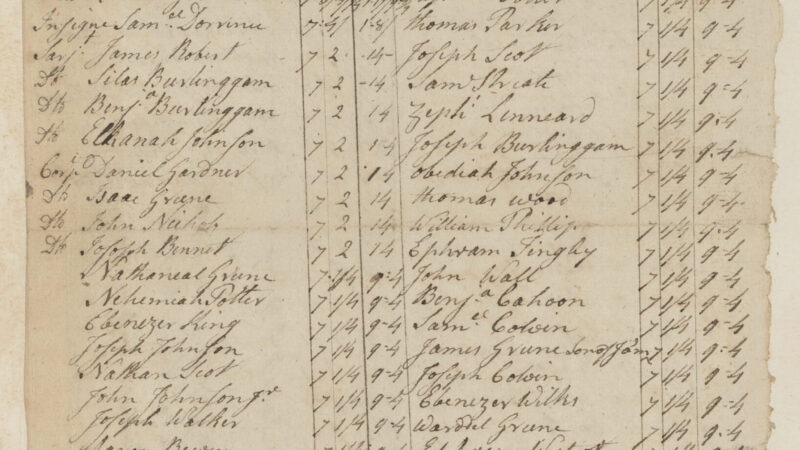 Insigne Sam.ll Dorrince 7 thomas Parker 7 1/4 9-4
Sarj.t James Robert 7 2 -14- Joseph Scot 7 1/4 9-4
Do Silas Burlinggam 7 2 -14 Sam.l 7 1/4 9=4
Do Benj.a Burlinggam 7 2 14 Zeph.i Lenneard 7 1/4 9-4
Do Elkanah Johnson 7 2 14 Joseph Burlinggam 7 1/4 9-4
Corp.o Daniel Gardner 7 2 14 obediah Johnson 7 1/4 9-4
Do Isaac Greene 7 2 14 thomas wood 7 1/4 9-4
Do John Nichols 7 2 14 William Phillip 7 1/4 9-4
Do Joseph Bennet 7 2 14 Ephram Tingby 7 1/4 9-4
Nathaneal Greene 7 1/4 9-4 John Wall 7 1/4 9-4
Nehemiah Potter 7 1/4 9-4 Benj.a Cahoon 7 1/4 9-4
Ebenezer King 7 1/4 9-4 Sam.ll Colvin 7 1/4 9-4
Joseph Johnson 7 1/4 9-4 James Greene Son of 7 1/4 9-4
Nathan Scot 7 1/4 9-4 Joseph Colvin 7 1/4 9-4
John Johnson Jr 7 1/4 9-4 Ebenezer Wilks 7 1/4 9-4
Joseph Walker 7 1/4 9-4 Warddel Greene 7 1/4 9-4